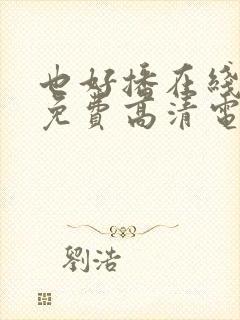 也好播在綫
免費高清電
劉浩